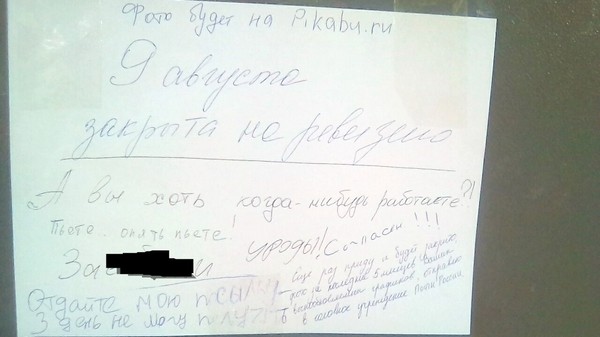 Фото будет на Pikabu.ru
9 августа
закрыта на ревезию
А вы хоть когда-нибудь работаете?!
Пьете.. опять пьете!
УРОДЫ! Согласен!!!
За
Отдайте мою посылку
3 день не могу
Еще раз приду и будет закрыто,
за последние 5 месяцев Вашим
графиком, отправлю
в головное учреждение Почты России